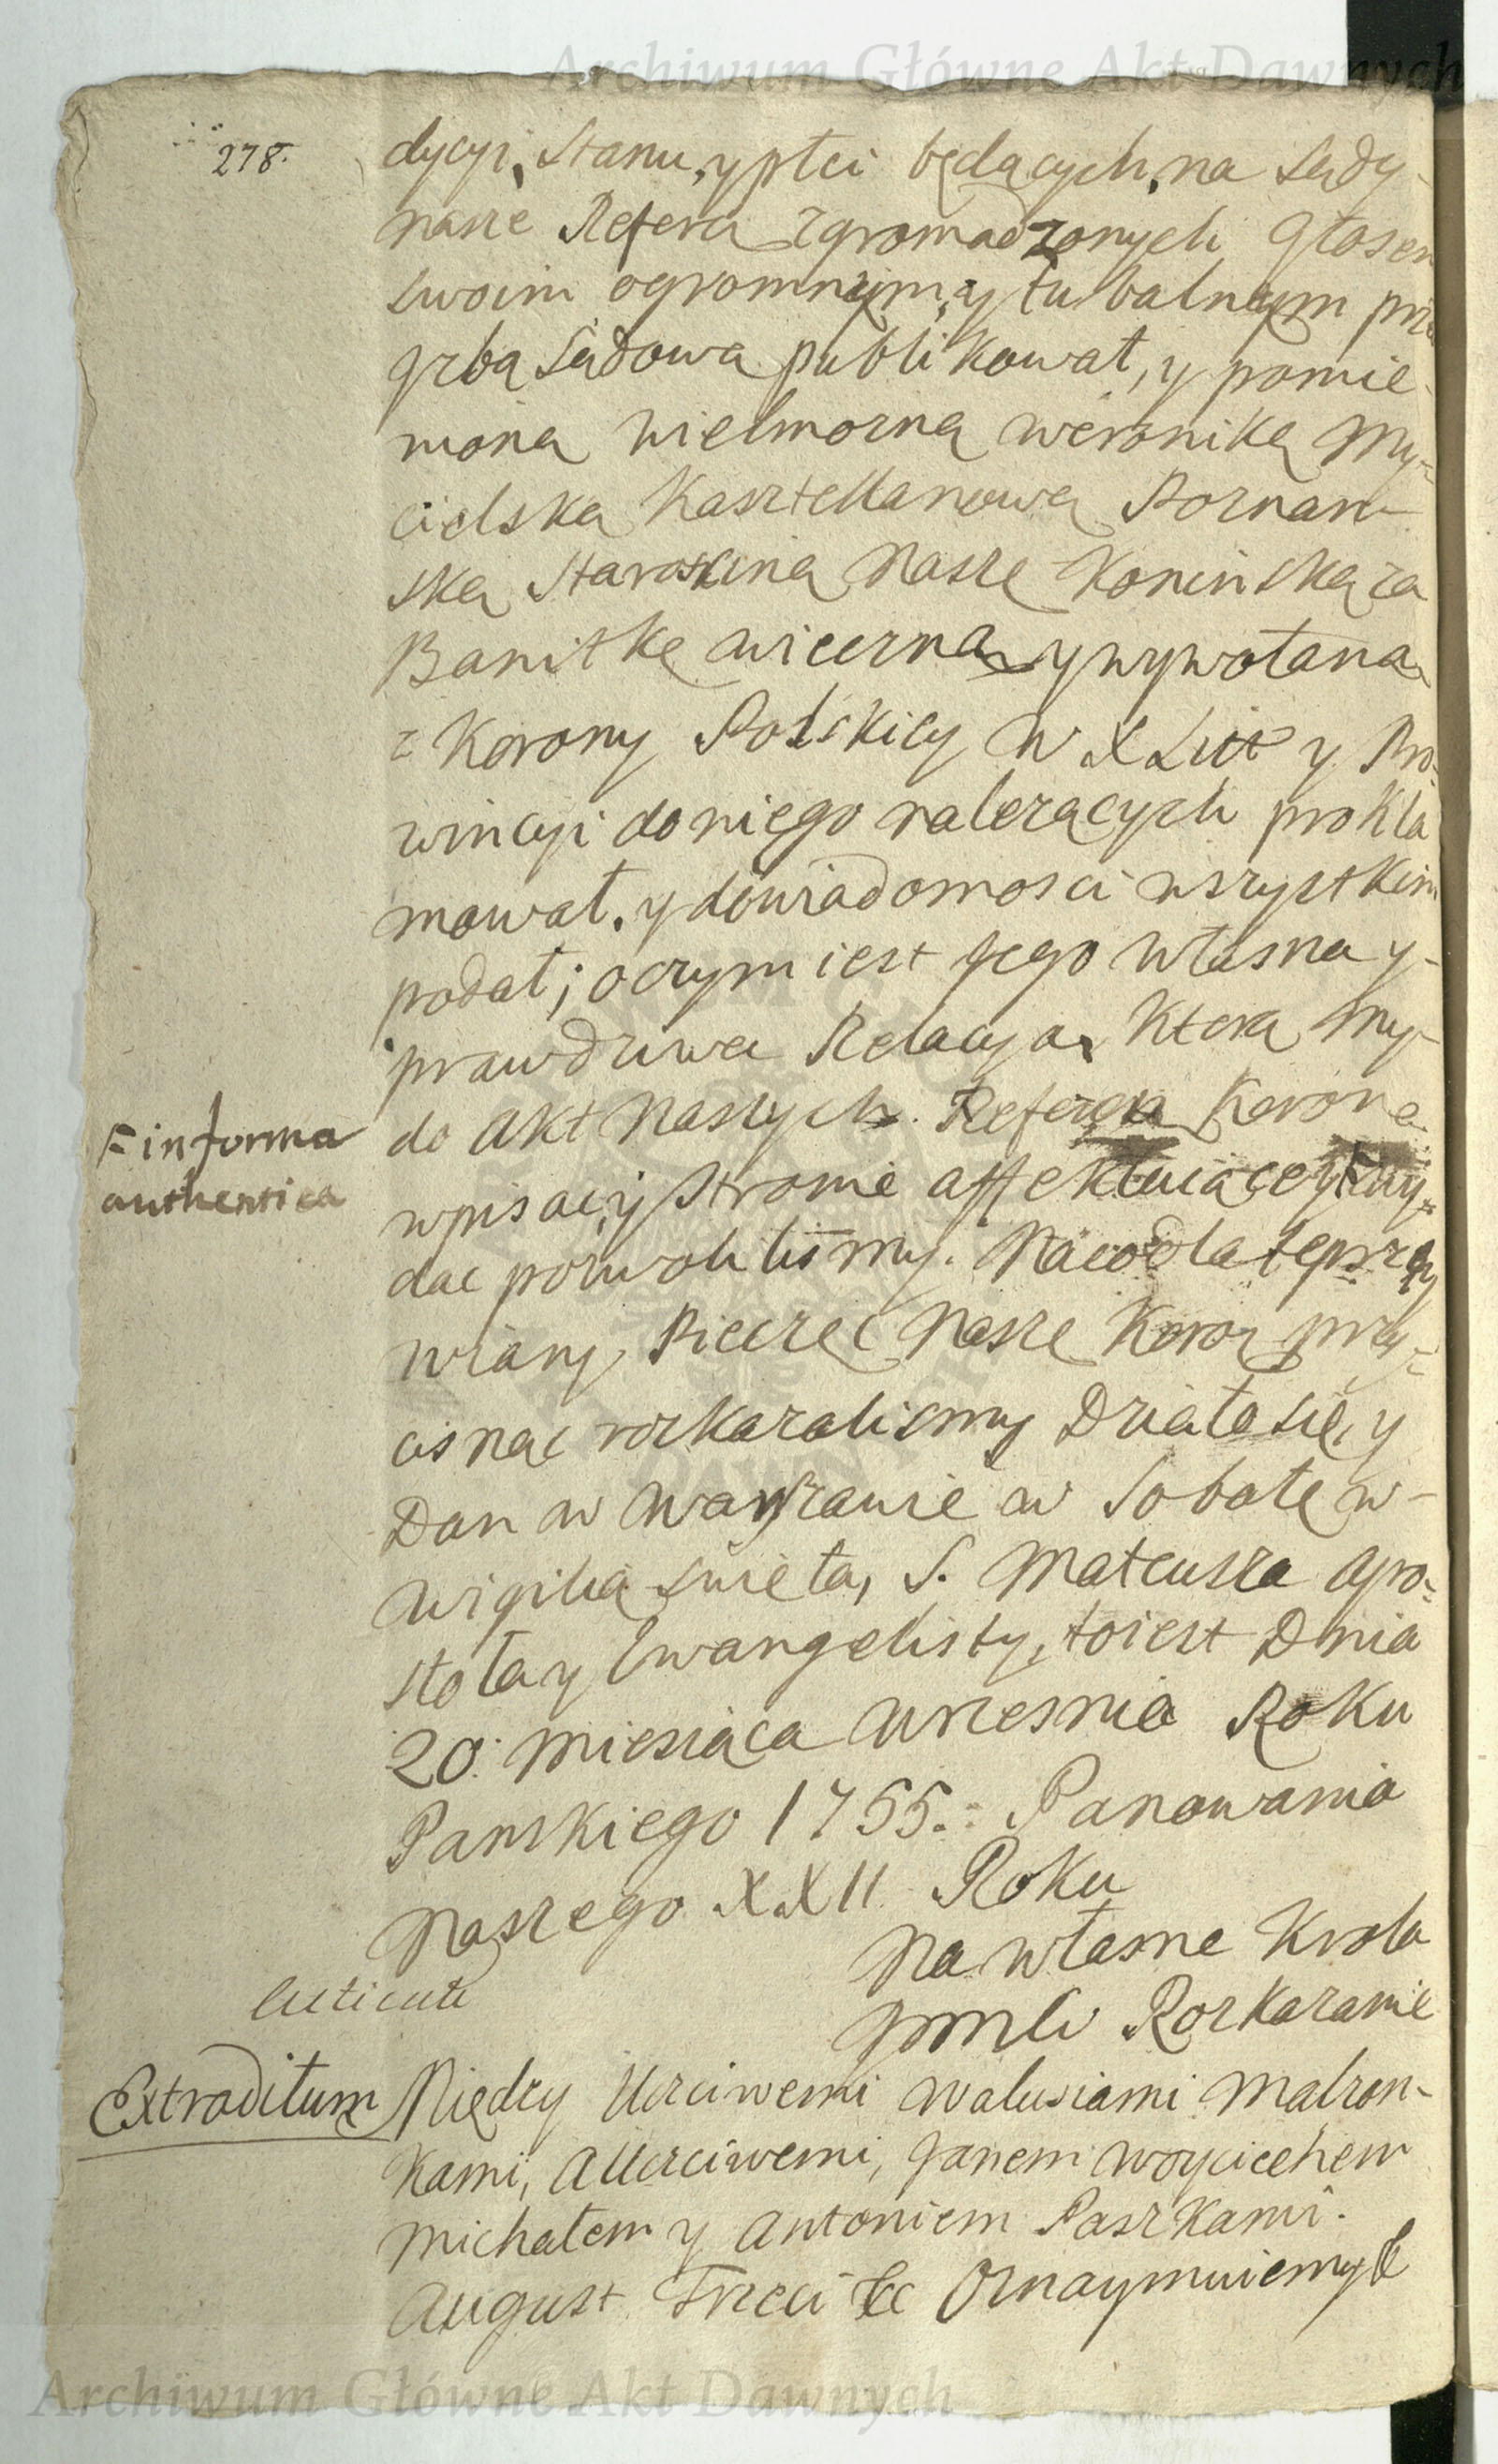 Archiwum Główne Akt Dawnych
278.
dycyi, Stanu, y płci będących, na Sądy-
nasze Refera zgromadzonych Głosem
swoim ogromnym, y tubalnym prze
grbą Sądową publikował, y pomie-
nioną Wielmozną Weronikę My-
cielską Kasztellanową Poznan-
ską Starościną Naszę Konińską za
Banitkę wieczną y wywołaną
z Korony Polskiey W X Litt y Pro-
wincyi do niego należących prokla
mował. y do wiadomosci wszystkim
podał; o czym iest Jego własna y-
prawdziwa Relacya, Ktorą My-
do Akt Naszych Referen Koronn
wpisać, y Stronie affektuiącey wy-
F in forma
authentica
dać pozwoliliśmy. Na co dla lepszey
wiary, Pieczęć Naszę Koron przy-
cisnąć rozkazaliśmy Działo się, y
Dan w Warszawie w Sobotę w-
wigilią święta, S. Mateusza Apo-
stoła y Ewangelisty, to iest Dnia
20. Miesiąca Wrzesnia Roku
Panskiego 1755. Panowania
Naszego XXII Roku
Na własne Krola
Jmsci Rozkazanie
Extraditum
Między Uczciwemi Walusiami Małzon-
kami, A Uczciwemi, Janem Woyciechem
Michałem y Antoniem Paszkami.
August Trzeci &c Oznaymuiemy &
Archiwum Główne Akt Dawnych